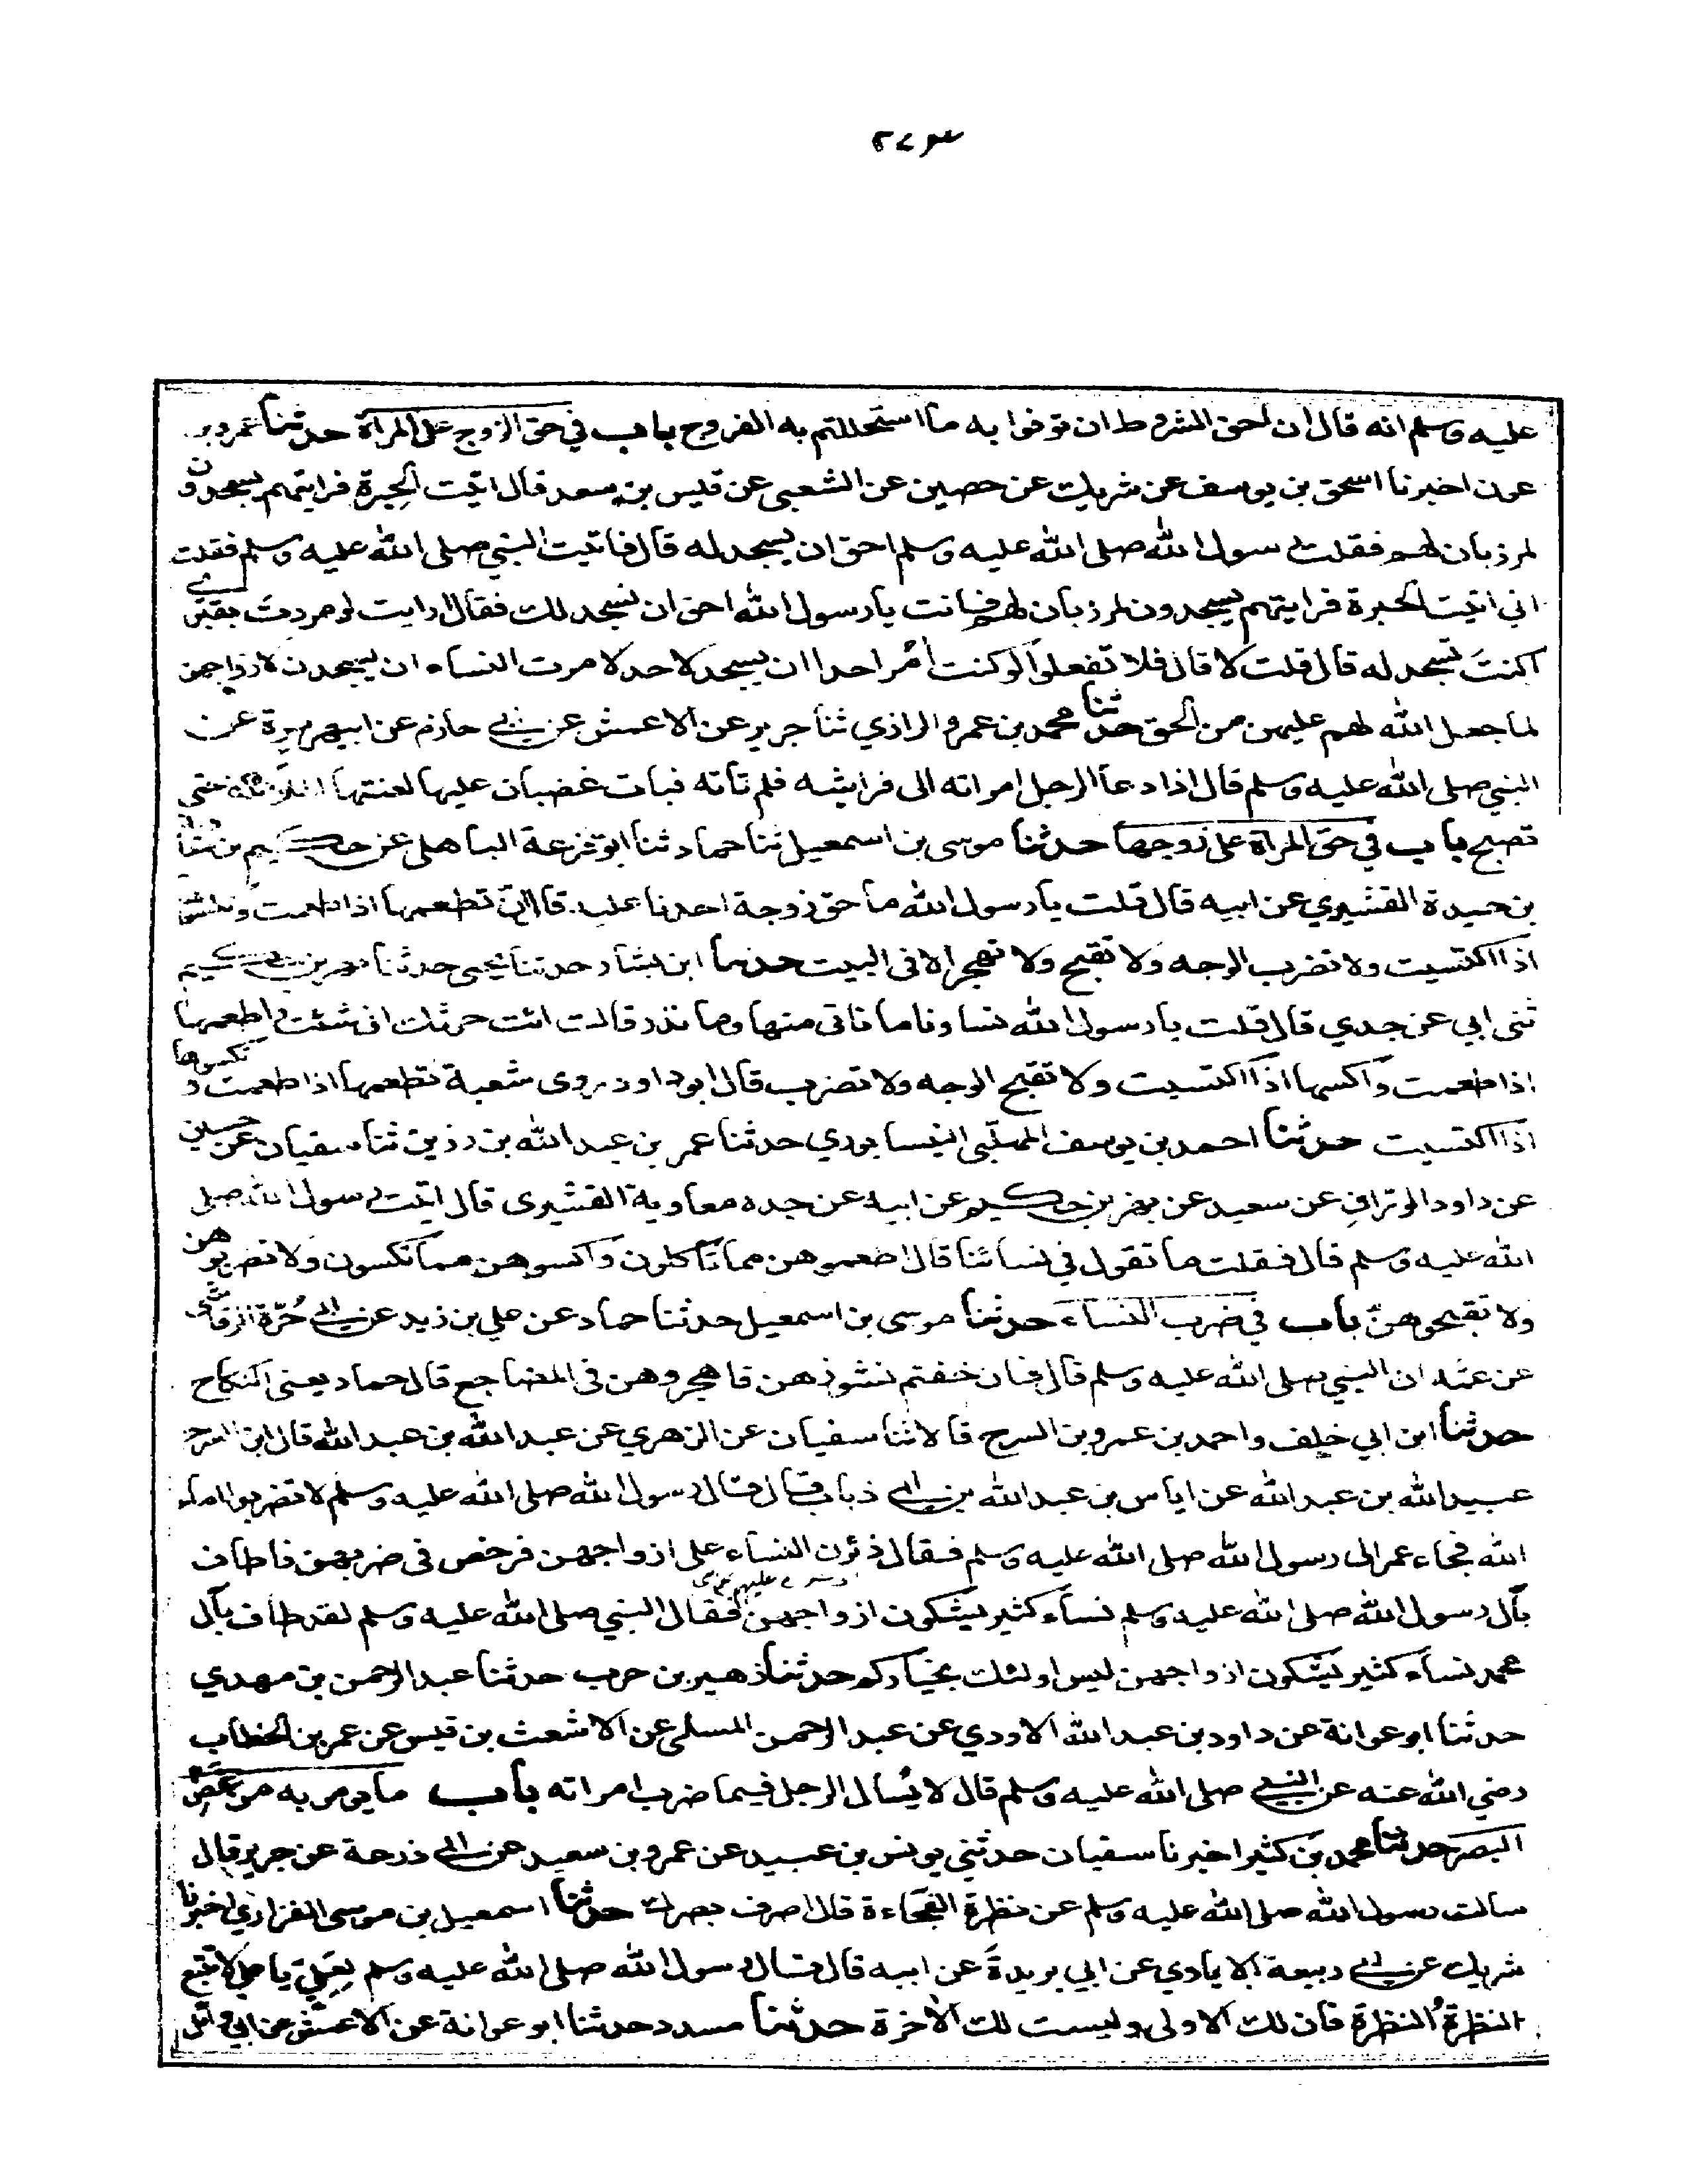 ٢٧٣
عليه وسلم انه قال ان احق الشروط ان توفوا به ما استحللتم به الفروج باب في حق الزوج على المراة حدثنا عمرو بن
عون اخبرنا اسحق بن يوسف عن شريك عن حصين عن الشعبي عن قيس بن سعد قال اتيت الحيرة فرايتهم يسجدون
لمرزبان لهم فقلت رسول الله صلى الله عليه وسلم احق ان يسجد له قال فاتيت النبي صلى الله عليه وسلم فقلت
اني اتيت الحيرة فرايتهم يسجدون لمرزبان لهم فانت يا رسول الله احق ان نسجد لك فقال ارايت لو مررت بقبري
اكنت تسجد له قال قلت لا قال فلا تفعلوا لو كنت آمر احدا ان يسجد لاحد لامرت النساء ان يسجدن لازواجهن
لما جعل الله لهم عليهن من الحق حدثنا محمد بن عمرو الرازي ثنا جرير عن الاعمش عن ابي حازم عن ابي هريرة عن
النبي صلى الله عليه وسلم قال اذا دعا الرجل امراته الى فراشه فلم تاته فبات غضبان عليها لعنتها الملائكة حتى
تصبح باب في حق المراة على زوجها حدثنا موسى بن اسمعيل ثنا حماد ثنا ابو قزعة الباهلي عن حكيم بن معاوية
بن حيدة القشيري عن ابيه قال قلت يا رسول الله ما حق زوجة احدنا عليه قال ان تطعمها اذا طعمت وتكسوها
اذا اكتسيت ولا تضرب الوجه ولا تقبح ولا تهجر الا في البيت حدثنا ابن بشار حدثنا يحيى حدثنا بهز بن حكيم
ثنى ابي عن جدي قال قلت يا رسول الله نساونا ما ناتي منها وما نذر قال ائت حرثك انى شئت واطعمها
اذا طعمت واكسها اذا اكتسيت ولا تقبح الوجه ولا تضرب قال ابو داود روى شعبة تطعمها اذا طعمت وتكسوها
اذا اكتسيت حدثنا احمد بن يوسف المهلبي النيسابوري حدثنا عمر بن عبد الله بن رزين ثنا سفيان بن حسين
عن داود الوراق عن سعيد عن بهز بن حكيم عن ابيه عن جده معاوية القشيرى قال اتيت رسول الله صلى
الله عليه وسلم قال فقلت ما تقول في نسائنا قال اطعموهن مما تاكلون واكسوهن مما تكسون ولا تضربوهن
ولا تقبحوهن باب في ضرب النساء حدثنا موسى بن اسمعيل حدثنا حماد عن علي بن زيد عن ابي حُرّة الرقاشي
عن عمه ان النبي صلى الله عليه وسلم قال فان خفتم نشوزهن فاهجروهن في المضاجع قال حماد يعني النكاح
حدثنا ابن ابي خلف واحمد بن عمرو بن السرح قالا ثنا سفيان عن الزهري عن عبد الله بن عبد الله قال ابن السرح
عبيد الله بن عبد الله عن اياس بن عبد الله بن ابي ذباب قال قال رسول الله صلى الله عليه وسلم لا تضربوا اماء
الله فجاء عمر الى رسول الله صلى الله عليه وسلم فقال ذئرن النساء على ازواجهن فرخص في ضربهن فاطاف
بآل رسول الله صلى الله عليه وسلم نساء كثير يشكون ازواجهن فقال النبي صلى الله عليه وسلم لقد طاف بآل
محمد نساء كثير يشكون ازواجهن ليس اولئك بخياركم حدثنا زهير بن حرب حدثنا عبد الرحمن بن مهدي
حدثنا ابو عوانة عن داود بن عبد الله الاودي عن عبد الرحمن المسلي عن الاشعث بن قيس عن عمر بن الخطاب
رضي الله عنه عن النبي صلى الله عليه وسلم قال لا يُسال الرجل فيما ضرب امراته باب ما يومر به من غض
البصر حدثنا محمد بن كثير اخبرنا سفيان حدثني يونس بن عبيد عن عمرو بن سعيد عن ابي زرعة عن جرير قال
سالت رسول الله صلى الله عليه وسلم عن نظرة الفجاءة قال اصرف بصرك حدثنا اسمعيل بن موسى الفزاري اخبرنا
شريك عن ابي ربيعة الايادي عن ابي بريدة عن ابيه قال قال رسول الله صلى الله عليه وسلم لعلي يا علي لا تتبع
النظرة النظرة فان لك الاولى وليست لك الآخرة حدثنا مسدد حدثنا ابو عوانة عن الاعمش عن ابي وائل